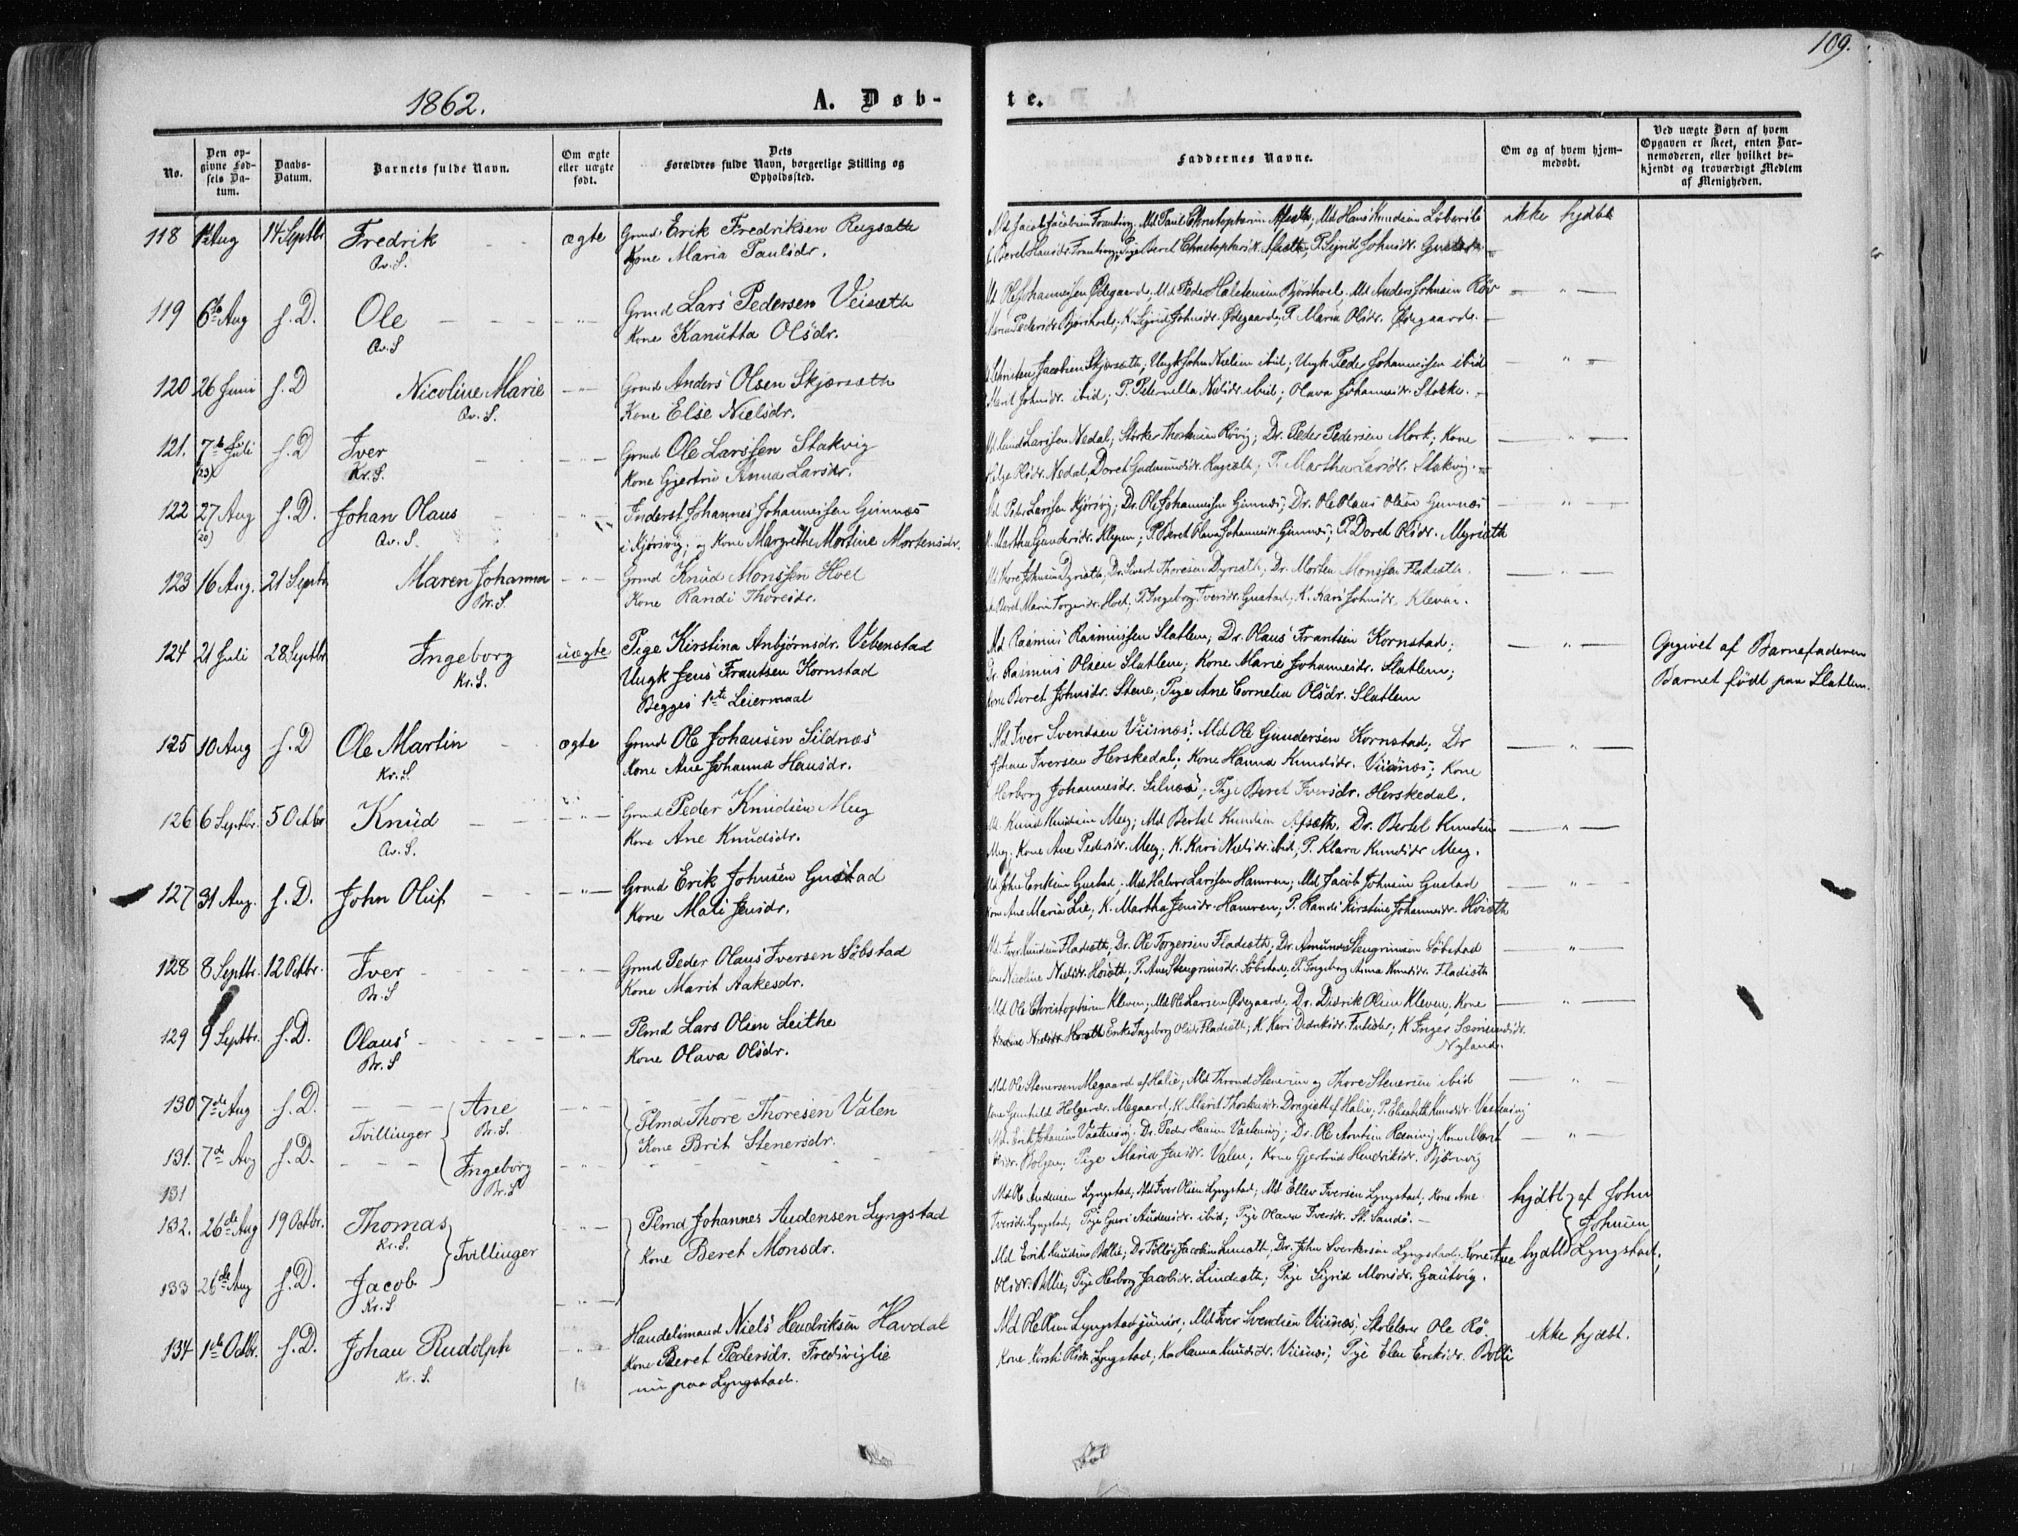 109.
1862.
A. Døb-
te.
No.
Den op-
givne Fød-
sels Da-
tum.
Daabs-
Datum.
Barnets fulde Navn.
Om ægte
eller uægte
født.
Dets
Forældres fulde Navn, borgerlige Stilling og
Opholdssted.
Faddernes Navne.
Om og af hvem hjem-
medøbt.
Ved uægte Børn af hvem
Opgaven er skeet, enten Bar-
nemoderen, eller hvilket be-
kjendt og troværdigt Medlem
af Menigheden.
118 Aug 14 Septbr. Fredrik ægte Grmd. Erik Fredriksen Rugsæth
Av. S. Kone Maria Paulsdr.
ikke hjdbt
119 6te Aug s. D. Ole Grmd Lars Pedersen Veisæth
Av. S Kone Kanutta Olsdr.
Md Ole Johannessen Ødegaard; Md Peder Halstensen Bjørshoel, Md Anders Johnsen
K. Sigrid Johnsdr. Ødegaard; P. Maria Olsdr. Ødegaard.
120 26 Juni s. D Nicoline Marie Grmd Anders Olsen Skjærsæth
Av. S. Kone Else Nielsdr.
Jacobsen Skjærsæth; Ungk John Nielsen ibid; Ungk Peder Johannessen ibid
Marit Johnsdr. ibid; P. Peternilla Nielsdr. ibid; Olava Johannesdr. Stokke.
121. 7de Juli s. D Iver Grmd Ole Larssen Stakvig
(23) Kr. S. Kone Gjertru Anna Larsdr.
Larssen Nedal; Størker Thorkersen Røvig; Dr. Peder Pedersen Mork; Kone
Helge Olsdr. Nedal, Doret Gudmundsdr. Rugsæth; P. Martha Larsdr. Stakvig.
122 27 Aug s. D. Johan Olaus Inderst Johannes Johannessen Gimnæs
(20) Av. S. i Kjørsvig; og Kone Margrethe Mortine Mortensdr.
Md Peter Larssen Kjørsvig; Dr. Ole Johannessen Gimnæs; Dr. Ole Olaus Olsen Gimnæs
Martha Gundersdr. Klepen; P. Beret Olava Johannesdr. Gimnæs; P. Doret Olsdr. Myrsæth
123 16 Aug. 21 Septbr. Maren Johanna Grmd Knud Monssen Hoel
Br. S. Kone Randi Thoresdr.
Md Thore Johnsen Dyrsæth, Dr. Sivert Thoresen Dyrsæth; Dr. Morten Monssen Fladsæth.
Beret Maria Torgersdr. Hoel, P. Ingeborg Iversdr. Gustad, K. Kari Johnsdr. Kleven.
124 21 Juli 28 Septbr. Ingeborg uægte Pige Kirstina Anbjørnsdr. Vebenstad
Kr. S. Ungk Jens Frantsen Kornstad
Begges 1ste Leiermaal
Md Rasmus Rasmussen Slatlem; Dr. Olaus Frantsen Kornstad;
Dr. Rasmus Olsen Slatlem; Kone Marie Johannesdr. Slatlem;
Kone Beret Johnsdr. Stene; Pige Ane Cornelia Olsdr. Slatlem
Opgivet af Barnefaderen
Barnet født paa Slatlem.
125 10 Aug s. D Ole Martin ægte Grmd Ole Johansen Sildnæs
Kr. S. Kone Ane Johanna Hansdr.
Md Iver Svendsen Viisnæs; Md Ole Gundersen Kornstad; Dr
Johan Iversen Herskedal; Kone Hanna Knudsdr. Viisnæs; Kone
Herborg Johannesdr. Silnæs; Pige Beret Iversdr. Herskedal.
126 6 Septbr. 5 Octbr Knud Grmd Peder Knudsen Meg
Av. S. Kone Ane Knudsdr.
Md. Knud Knudsen Meg; Md Bertel Knudsen Afsæth. Dr. Bertel Knudsen
Meg; Kone Ane Pedersdr. Meg; K. Kari Nielsdr. ibid; P. Klara Knudsdr Meg.
127 31 Aug. s. D. John Oluf Grmd Erik Johnsen Gustad
Kone Mali Jensdr.
Md John Ericksen Gustad; Md Halvor Larssen Hamren; Md Jacob Johnsen Gustad
Kone Ane Maria Lie; K. Martha Jensdr. Hamren; P. Randi Kirstine Johannesdr. Høisæth
128 8 Septbr. 12 Octbr. Iver Grmd Peder Olaus Iversen Søbstad
Br. S Kone Marit Aakesdr.
Md Iver Knudsen Fladsæth; Dr. Ole Torgersen Fladsæth; Dr. Amund Stengrimsen Søbstad
Kone Nicoline Nielsdr. Høisæth; P. Ane Stengrimsdr. Søbstad, P. Ingeborg Anna Knudsdr. Fladsæth
129 9 Septbr. s. D. Olaus Plmd Lars Olsen Leithe
Br. S Kone Olava Olsdr.
Md Ole Christophersen Kleven; Md Ole Larsen Ødegaard, Dr. Didrik Olsen Kleven, Kone
Ingeborg Olsdr Fladsæth; K. Kari Didriksdr. K Inger Sæmundsdr.
Nyland.
130 7de Aug s. D. Ane Plmd Thore Thoresen Valen
Tvillinger Br. S. Kone Brit Stenersdr.
131. 7de Aug s. D. Ingeborg
Br. S
Md Ole Stenersen Megaard af Halse; Md Thrond Stenersen og Thore Stenersen ibid
Kone Gunhild Holgersdr. Megaard, K. Marit Thorkersdr. af Halse; P. Elisabeth Knudsdr. Vaststenvig
Md. Erik Johansen Dr. Peder Hansen Dr. Ole Arntsen Kone Marit
Bolgen; Pige Maria Jensdr. Valen; Kone Gjertrud Hendriksdr. Bjørnvig
131
132. 26de Aug 19 Octbr. Thomas Plmd Johannes Audensen Lyngstad
Kr. S. Tvillinger Kone Beret Monsdr.
133 26de Aug s. D. Jacob
Kr. S
Md Ole Andersen Lyngstad, Md Iver Olsen Lyngstad; Md Ellev Iversen Lyngstad, Kone Ane
Iversdr. Lyngstad, Pige Guri Audensdr. ibid; Pige Olava Iversdr. St. Sandø.
hjdbt af John
Johnsen
Md Erik Knudsen Bollie; Dr Jacobsen Dr. John Sverkersen Lyngstad. Kone Ane hjdbt Lyngstad.
Olsdr. Bollie; Pige Herborg Jacobsdr. Lindsæth; Pige Sigrid Monsdr. Gautvig.
134 1ste Octbr. s. D. Johan Rudolph Handelsmand Niels Hendriksen Havdal
Kr. S. Kone Beret Pedersdr. Fredsviglie
nu paa Lyngstad.
Md Ole Olsen Lyngstad junior; Md Iver Svendsen Viisnæs; Skolelærer Ole Rø. ikke hjdbt.
Kone Kirsti Olsdr Lyngstad; K. Hanna Knudsdr. Viisnæs; Pige Elen Ericksdr. Bollie